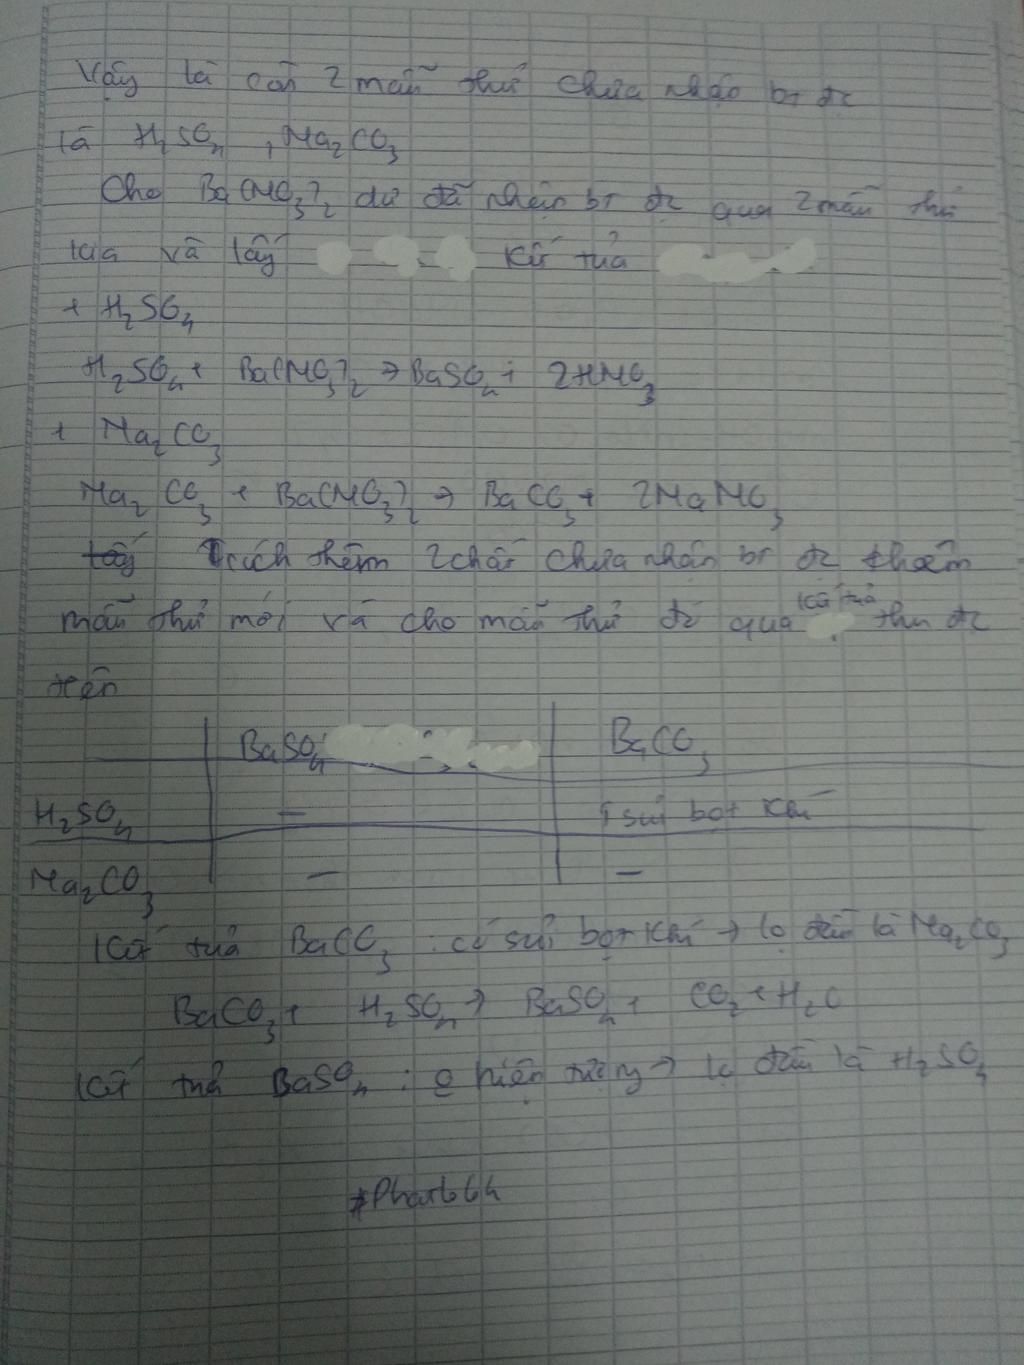 Vậy là còn 2 mẫu thử chưa nhận bt đc
là H₂SO₄, Na₂CO₃
Cho Ba(NO₃)₂ dư đã nhận bt đc qua 2 mẫu thử
kia và lấy kết tủa
+ H₂SO₄
H₂SO₄ + Ba(NO₃)₂ → BaSO₄ + 2HNO₃
+ Na₂CO₃
Na₂CO₃ + Ba(NO₃)₂ → BaCO₃ + 2NaNO₃
Trích thêm 2 chất chưa nhận bt đc thêm
mẫu thử mới và cho mẫu thử đó qua kết tủa thu đc
trên
BaSO₄ BaCO₃
H₂SO₄ — sủi bọt khí
Na₂CO₃ — —
Kết tủa BaCO₃ : có sủi bọt khí → lọ đầu là Na₂CO₃
BaCO₃ + H₂SO₄ → BaSO₄ + CO₂ + H₂O
Kết tủa BaSO₄ : o hiện tượng → lọ đầu là H₂SO₄